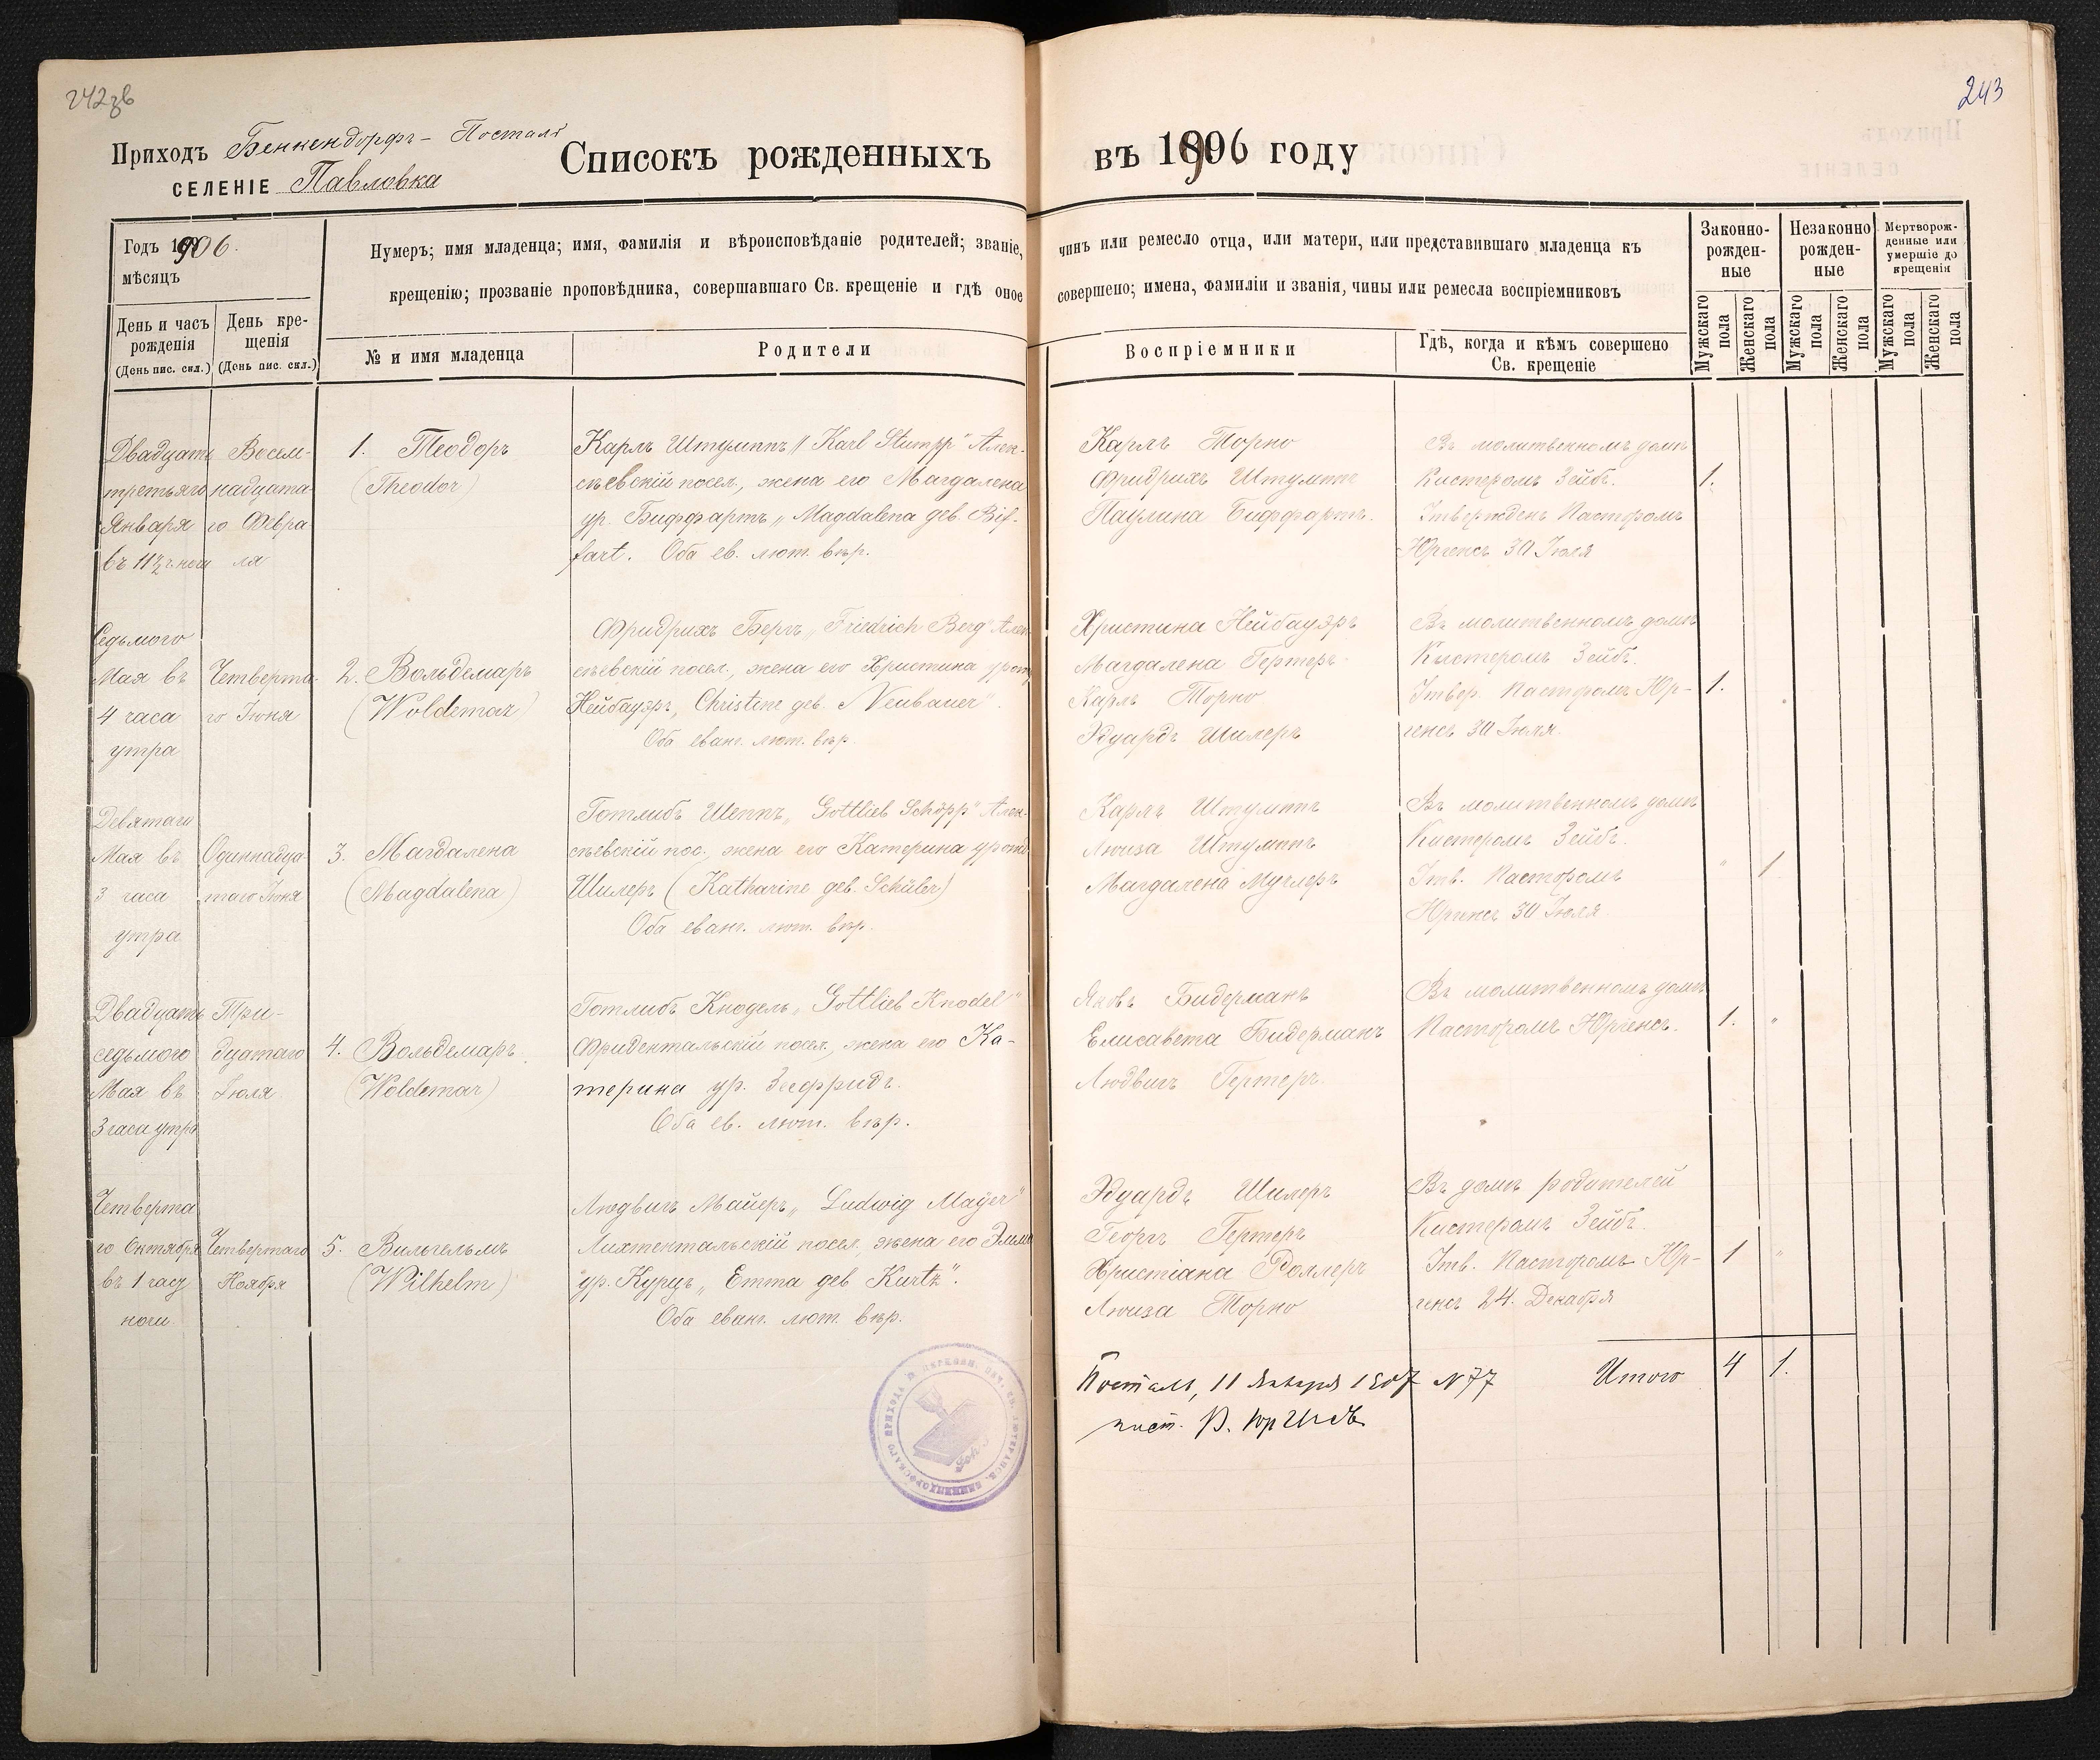 242зв
243
Приходъ Бенкендорфъ-Посталь
Списокъ рожденныхъ въ 1906 году
селеніе Павловка
Годъ 1906.
мѣсяцъ
Нумеръ; имя младенца; имя, фамилія и вѣроисповѣданіе родителей; званіе, чинъ или ремесло отца, или матери, или представившаго младенца къ
крещенію; прозваніе проповѣдника, совершавшаго Св. крещеніе и гдѣ оное совершено; имена, фамиліи и званія, чины или ремесла воспріемниковъ
Законно-
рожден-
ные
Незаконно
рожден-
ные
Мертворож-
денные или
умершіе до
крещенія
День и часъ
рожденія
(День пис. скл.)
День кре-
щенія
(День пис. скл.)
№ и имя младенца
Родители
Воспріемники
Гдѣ, когда и кѣмъ совершено
Св. крещеніе
Мужскаго
пола
Женскаго
пола
Мужскаго
пола
Женскаго
пола
Мужскаго
пола
Женскаго
пола
Двадцать
третьяго
Января
въ 11½ ч. ночи
Восем-
надцата-
го Февра
ля
1. Теодоръ
(Theodor)
Карлъ Штумппъ „Karl Stumpp" Алек-
сѣевскій посел., жена его Магдалена
ур. Биффартъ „Magdalena geb. Bif-
fart. Оба ев. лют. вѣр.
Карлъ Торно
Фридрихъ Штумппъ
Паулина Биффартъ.
Въ молитвенномъ домѣ
Кистеромъ Зейбъ.
Утвержденъ Пасторомъ
Юргенсъ 30 Іюля
1.
Седьмого
Мая въ
4 часа
утра
Четверта-
го Іюня
2. Вольдемаръ
(Woldemar)
Фридрихъ Бергъ „Friedrich Berg" Алек
сѣевскій посел., жена его Христина урож
Нейбауэръ, Christine geb. Neubauer".
Оба еванг. лют. вѣр.
Христина Нейбауэръ
Магдалена Гертеръ
Карлъ Торно
Эдуардъ Шилеръ
Въ молитвенномъ домѣ
Кистеромъ Зейбъ.
Утвер. Пасторомъ Юр-
генсъ 30 Іюля.
1.
Девятаго
Мая въ
3 часа
утра
Одиннадца-
таго Іюня
3. Магдалена
(Magdalena)
Готлибъ Шеппъ „Gottlieb Schöpp" Алек-
сѣевскій пос., жена его Катерина урожд.
Шилеръ (Katharine geb. Schüler)
Оба еванг. лют. вѣр.
Карлъ Штумппъ
Люиза Штумппъ
Магдалена
Въ молитвенномъ домѣ
Кистеромъ Зейбъ.
Утв. Пасторомъ
Юргенсъ 30 Іюля
" 1
Двадцать
седьмого
Мая въ
3 часа утра
Три-
дцатаго
Іюля
4. Вольдемаръ.
(Woldemar)
Готлибъ Кнодель „Gottlieb Knodel"
Фридентальскій посел., жена его Ка-
терина ур. Зигфридъ.
Оба ев. лют. вѣр.
Яковъ Бидерманъ
Елисавета Бидерманъ
Людвигъ Гертеръ.
Въ молитвенномъ домѣ
Пасторомъ Юргенсъ.
1. "
Четверта
го Октября
въ 1 часу
ночи.
Четвертаго
Ноября
5. Вильгельмъ
(Wilhelm)
Людвигъ Майеръ „Ludwig Mayer"
Лихтентальскій посел., жена его Эмма
ур. Курцъ „Emma geb Kurtz".
Оба еванг. лют. вѣр.
Эдуардъ Шилеръ
Георгъ Гертеръ
Христіана Роллеръ
Люиза Торно
Въ домѣ родителей
Кистеромъ Зейбъ.
Утв. Пасторомъ Юр-
генсъ 24. Декабря
1 "
Итого 4 1.
Посталь, 11 Января 1907 N 77
паст. Юргенсъ